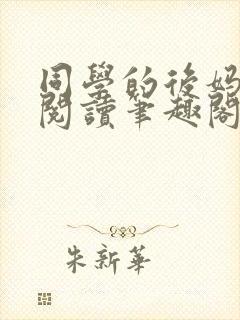 同學的後媽
閱讀筆趣閣
朱新華